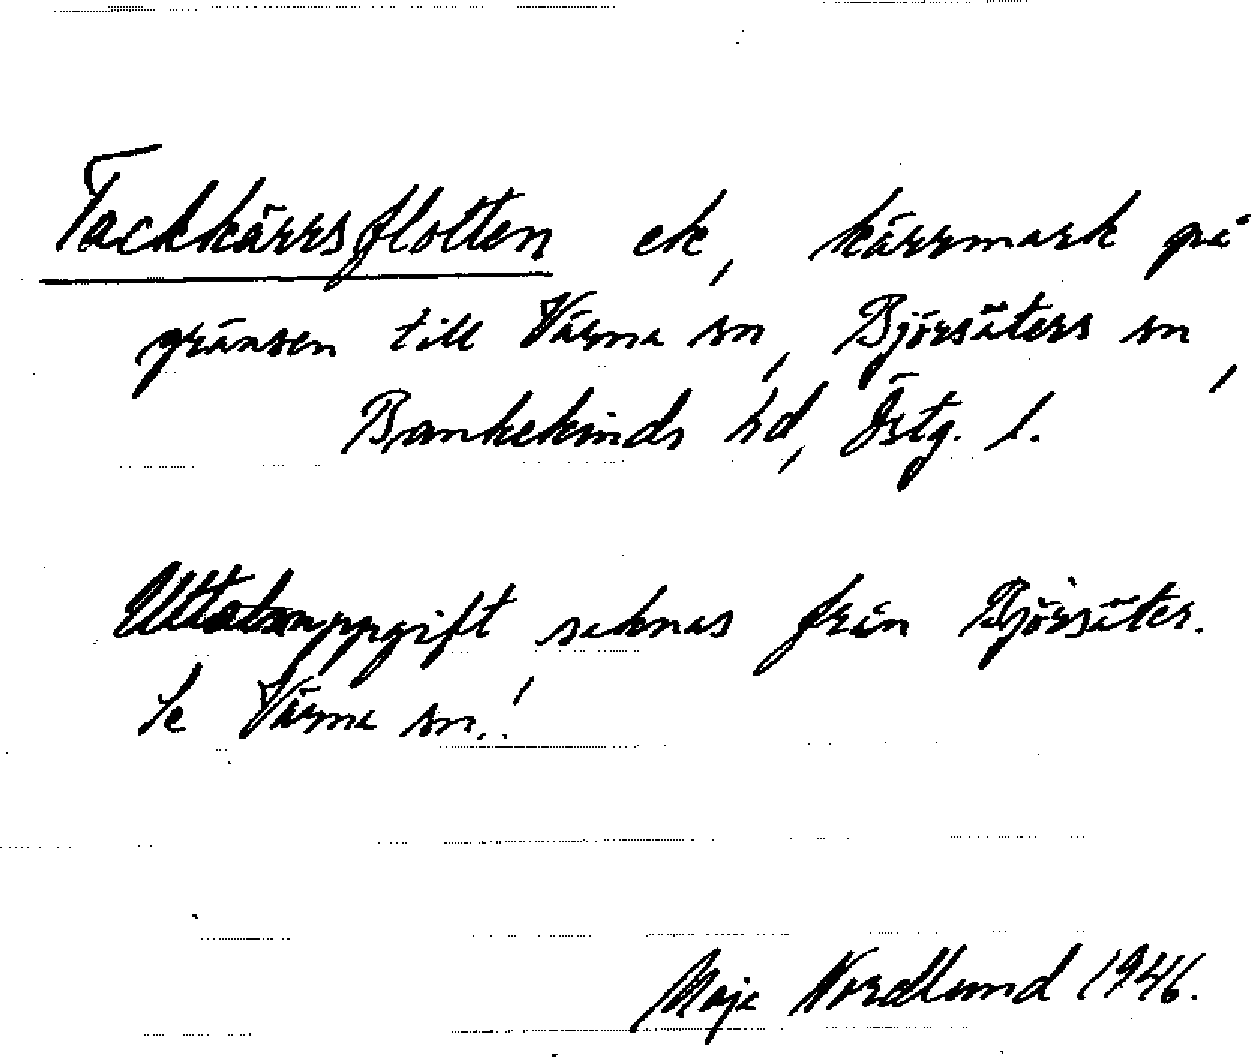 Tackkärrsflotten ek, kärrmark på
gränsen till Värna sn, Björsäters sn,
Bankekinds hd, Östg. l.
Uttalsuppgift saknas från Björsäter.
Se Värna sn.!
Maja Nordlund 1946.